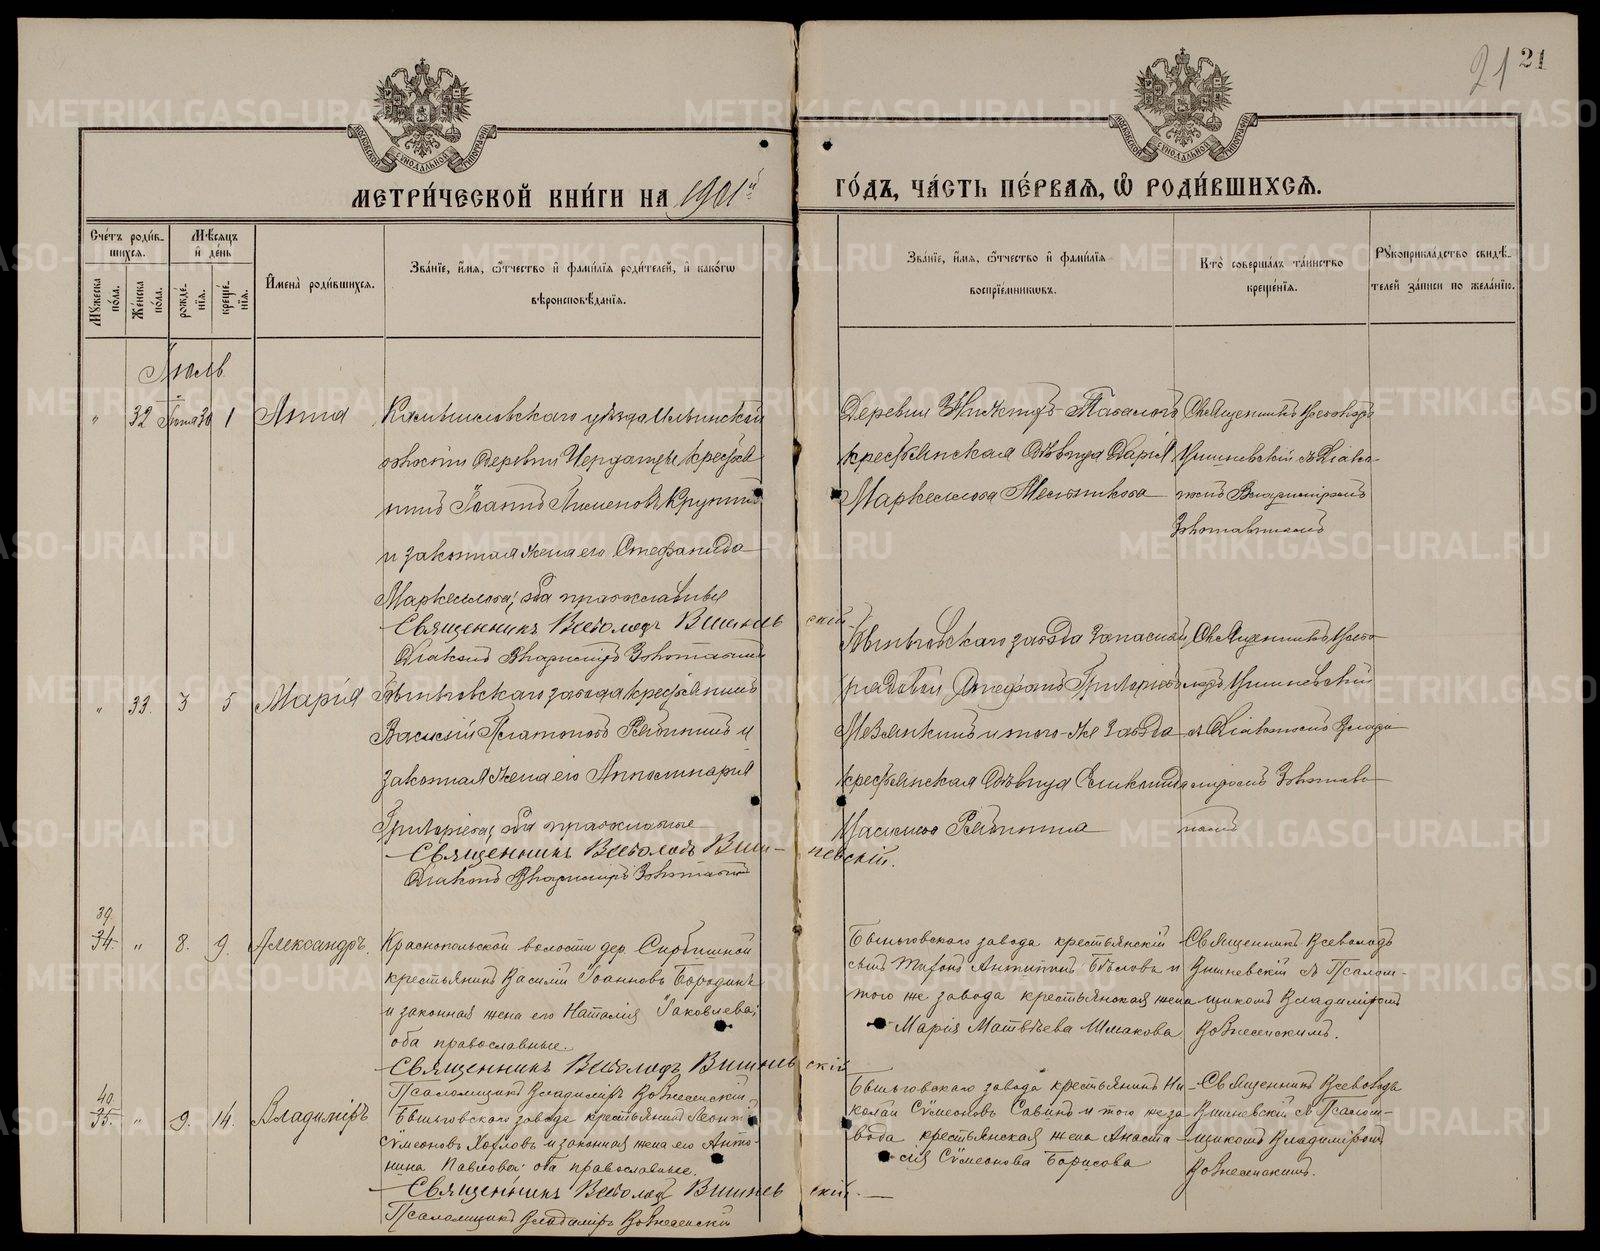 21 21
МЕТРИ́ЧЕСКОЙ КНИ́ГИ НА 1901й ГО́ДЪ, ЧА́СТЬ ПЕ́РВАѦ, Ѡ҆ РОДИ́ВШИХСѦ.
МОСКОВСКОЙ СѴНОДАЛЬНОЙ ТИПОГРАФІИ
МОСКОВСКОЙ СѴНОДАЛЬНОЙ ТИПОГРАФІИ
Сче́тъ роди́в-
шихсѧ.
Мꙋжеска по́ла.
Же́нска по́ла.
Мѣ́сѧцъ
и҆ де́нь
рожде́-
нїѧ.
креще́-
нїѧ.
И҆мена̀ роди́вшихсѧ.
Зва́нїе, и҆́мѧ, ѻ҆́тчество и҆ фами́лїѧ роди́телей, и҆ како́гѡ
вѣроисповѣ́данїѧ.
Зва́нїе, и҆́мѧ, ѻ҆́тчество и҆ фами́лїѧ
воспрїе́мникѡвъ.
Кто̀ соверша́лъ та́инство
креще́нїѧ.
Рꙋкоприкла́дство свидѣ́-
телей за́писи по жела́нїю.
Іюль
" 32 Іюня 30 1 Анна
Камышловскаго уѣзда Ильинской
волости деревни крестья-
нинъ Іоаннъ
и законная жена его Стефанида
Маркеллова; оба православные
Священникъ Всеволодъ Вишневскій
Діаконъ Владиміръ
Деревни
крестьянская дѣвица Дарія
Маркеллова Мельникова
Священникъ Всеволодъ
Вишневскій съ Діако-
номъ Владиміромъ
" 33. 3 5 Марія
Быньговскаго завода крестьянинъ
Василій Платоновъ Рябининъ и
законная жена его Апполинарія
Григоріева; оба православные
Священникъ Всеволодъ Вишневскій.
Діаконъ Владиміръ
Быньговскаго завода запасной
рядовой Стефанъ Григоріевъ
Мезянкинъ и того-же завода
крестьянская дѣвица
Рябинина
Священникъ Всево-
лодъ Вишневскій
съ Діакономъ Влади-
міромъ
39
34. " 8. 9. Александръ.
Краснопольской волости дер. Сирбишной
крестьянинъ Василій Іоанновъ Бородинъ
и законная жена его Наталія Іаковлева;
оба православные.
Священникъ Всеволодъ Вишневскій
Псаломщикъ Владиміръ Вознесенскій
Быньговскаго завода крестьянскій
сынъ Бѣловъ и
того же завода крестьянская жена
Марія Матвѣева Шмакова
Священникъ Всеволодъ
Вишневскій съ Псалом-
щикомъ Владиміромъ
Вознесенскимъ.
40
35. " 9. 14. Владиміръ
Быньговскаго завода крестьянинъ Леонтій
Сѵмеоновъ и законная жена его Анто-
нина Павлова; оба православные.
Священникъ Всеволодъ Вишневскій.
Псаломщикъ Владиміръ Вознесенскій
Быньговскаго завода крестьянинъ Ни-
колай Сѵмеоновъ Савинъ и того же за-
вода крестьянская жена Анаста-
сія Сѵмеонова Борисова
Священникъ Всеволодъ
Вишневскій съ Псалом-
щикомъ Владиміромъ
Вознесенскимъ.
METRIKI.GASO-URAL.RU